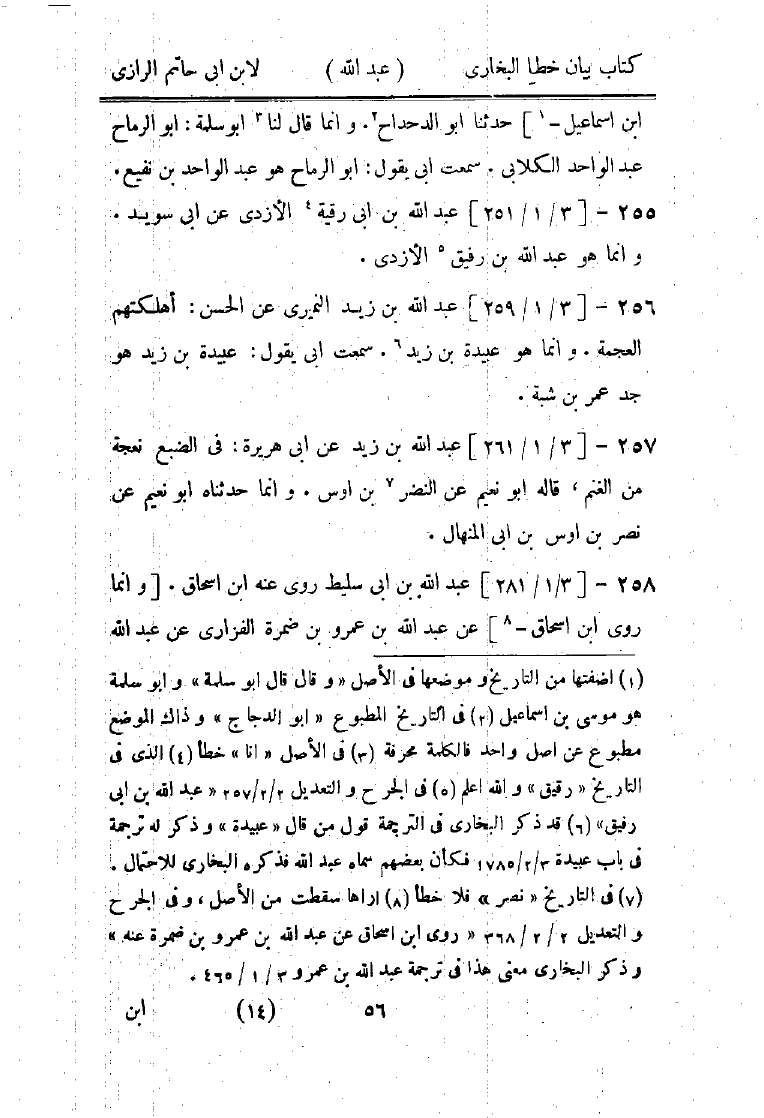 كتاب بيان خطأ البخارى ( عبد الله ) لابن ابى حاتم الرازى
ابن اسماعيل - ١ ] حدثنا ابو الدحداح ٢ . و انما قال لنا ٣ ابو سلمة : ابو الرماح
عبد الواحد الكلابى . سمعت ابى يقول : ابو الرماح هو عبد الواحد بن نفيع .
٢٥٥ - [ ٣ / ١ / ٢٥١ ] عبد الله بن ابى رقية ٤ الأزدى عن ابى سويد .
و انما هو عبد الله بن رفيق ٥ الأزدى .
٢٥٦ - [ ٣ / ١ / ٢٥٩ ] عبد الله بن زيد النميرى عن الحسن : أهلكتهم
العجمة . و انما هو عبيدة بن زيد ٦ . سمعت ابى يقول : عبيدة بن زيد هو
جد عمر بن شبة .
٢٥٧ - [ ٣ / ١ / ٢٦١ ] عبد الله بن زيد عن ابى هريرة : فى الضبع نعجة
من الغنم ، قاله ابو نعيم عن النضر ٧ بن اوس . و انما حدثناه ابو نعيم عن
نصر بن اوس بن ابى المنهال .
٢٥٨ - [ ٣ /١ / ٢٨١ ] عبد الله بن ابى سليط روى عنه ابن اسحاق . [ و انما
روى ابن اسحاق - ٨ ] عن عبد الله بن عمرو بن ضمرة الفزارى عن عبد الله
(١) اضفتها من التاريخ و موضعها فى الأصل « و قال قال ابو سلمة » و ابو سلمة
هو موسى بن اسماعيل (٢) فى التاريخ المطبوع « ابو الدجاج » و ذاك الموضع
مطبوع عن اصل واحد فالكلمة محرفة (٣) فى الأصل « انا » خطأ (٤) الذى فى
التاريخ « رقيق » و الله اعلم (٥) فى الجرح و التعديل ٢/٢/ ٢٥٧ « عبد الله بن ابى
رفيق » (٦) قد ذكر البخارى فى الترجمة قول من قال « عبيدة » و ذكر له ترجمة
فى باب عبيدة ٣ /٢/ ١٧٨٥ فكأن بعضهم سماه عبد الله فذكره البخارى للاحتمال .
(٧) فى التاريخ « نصر » فلا خطأ (٨) اراها سقطت من الأصل ، و فى الجرح
و التعديل ٢ / ٢ / ٣٦٨ « روى ابن اسحاق عن عبد الله بن عمرو بن ضمرة عنه »
و ذكر البخارى معنى هذا فى ترجمة عبد الله بن عمرو ٣ / ١ / ٤٦٥ .
٥٦ (١٤) ابن